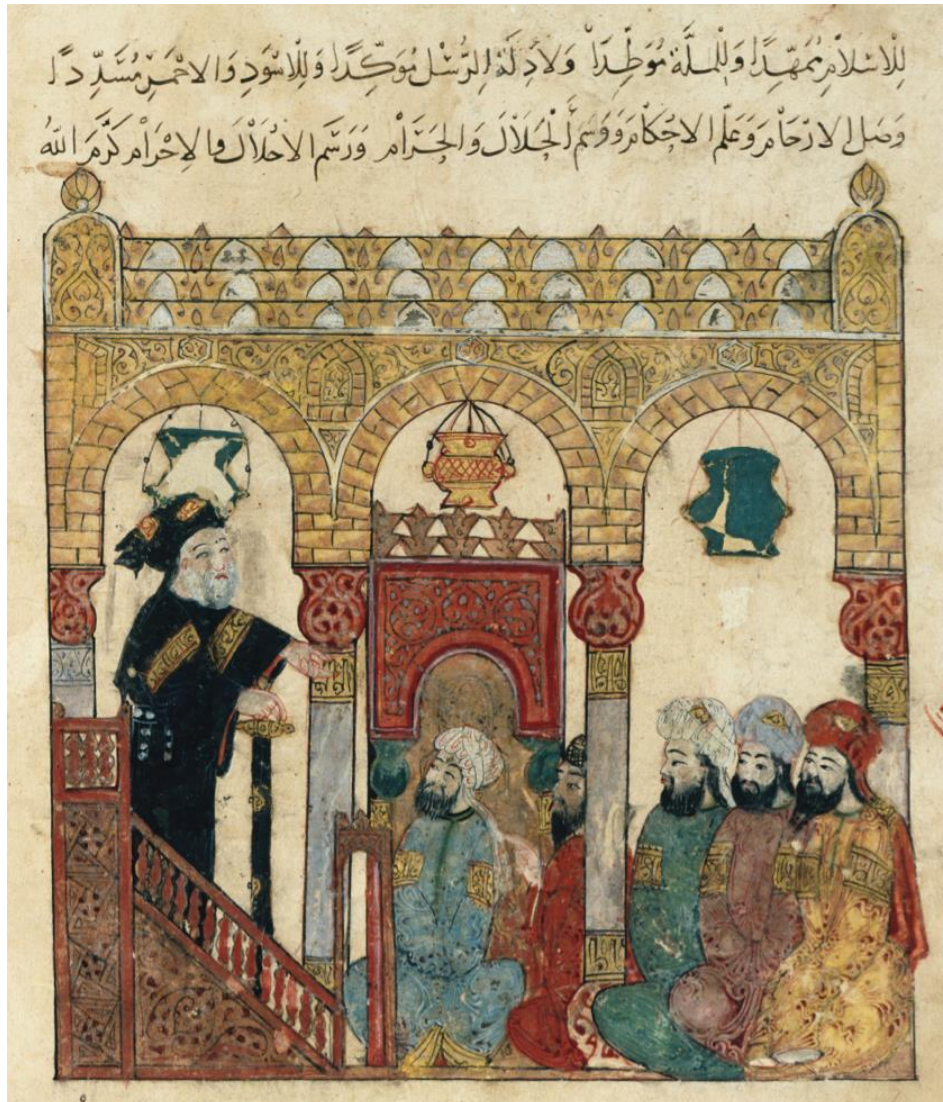 لِلاسْلَامِ مُمَهِّدًا وَلِلْمِلَّةِ مُوَطِّدًا وَلادِلَّةِ الرُّسُلِ مُوَكِّدًا وَلِلاسْوَدِ وَالاحْمَرِ مُسَدِّدًا
وَصَلَ الارْحَامَ وَعَلَّمَ الاحْكَامَ وَوَسَمَ الْحَلَالَ وَالْحَرَامَ وَرَسَمَ الاحْلَالَ وَالاحْرَامَ كَرَّمَ اللهُ